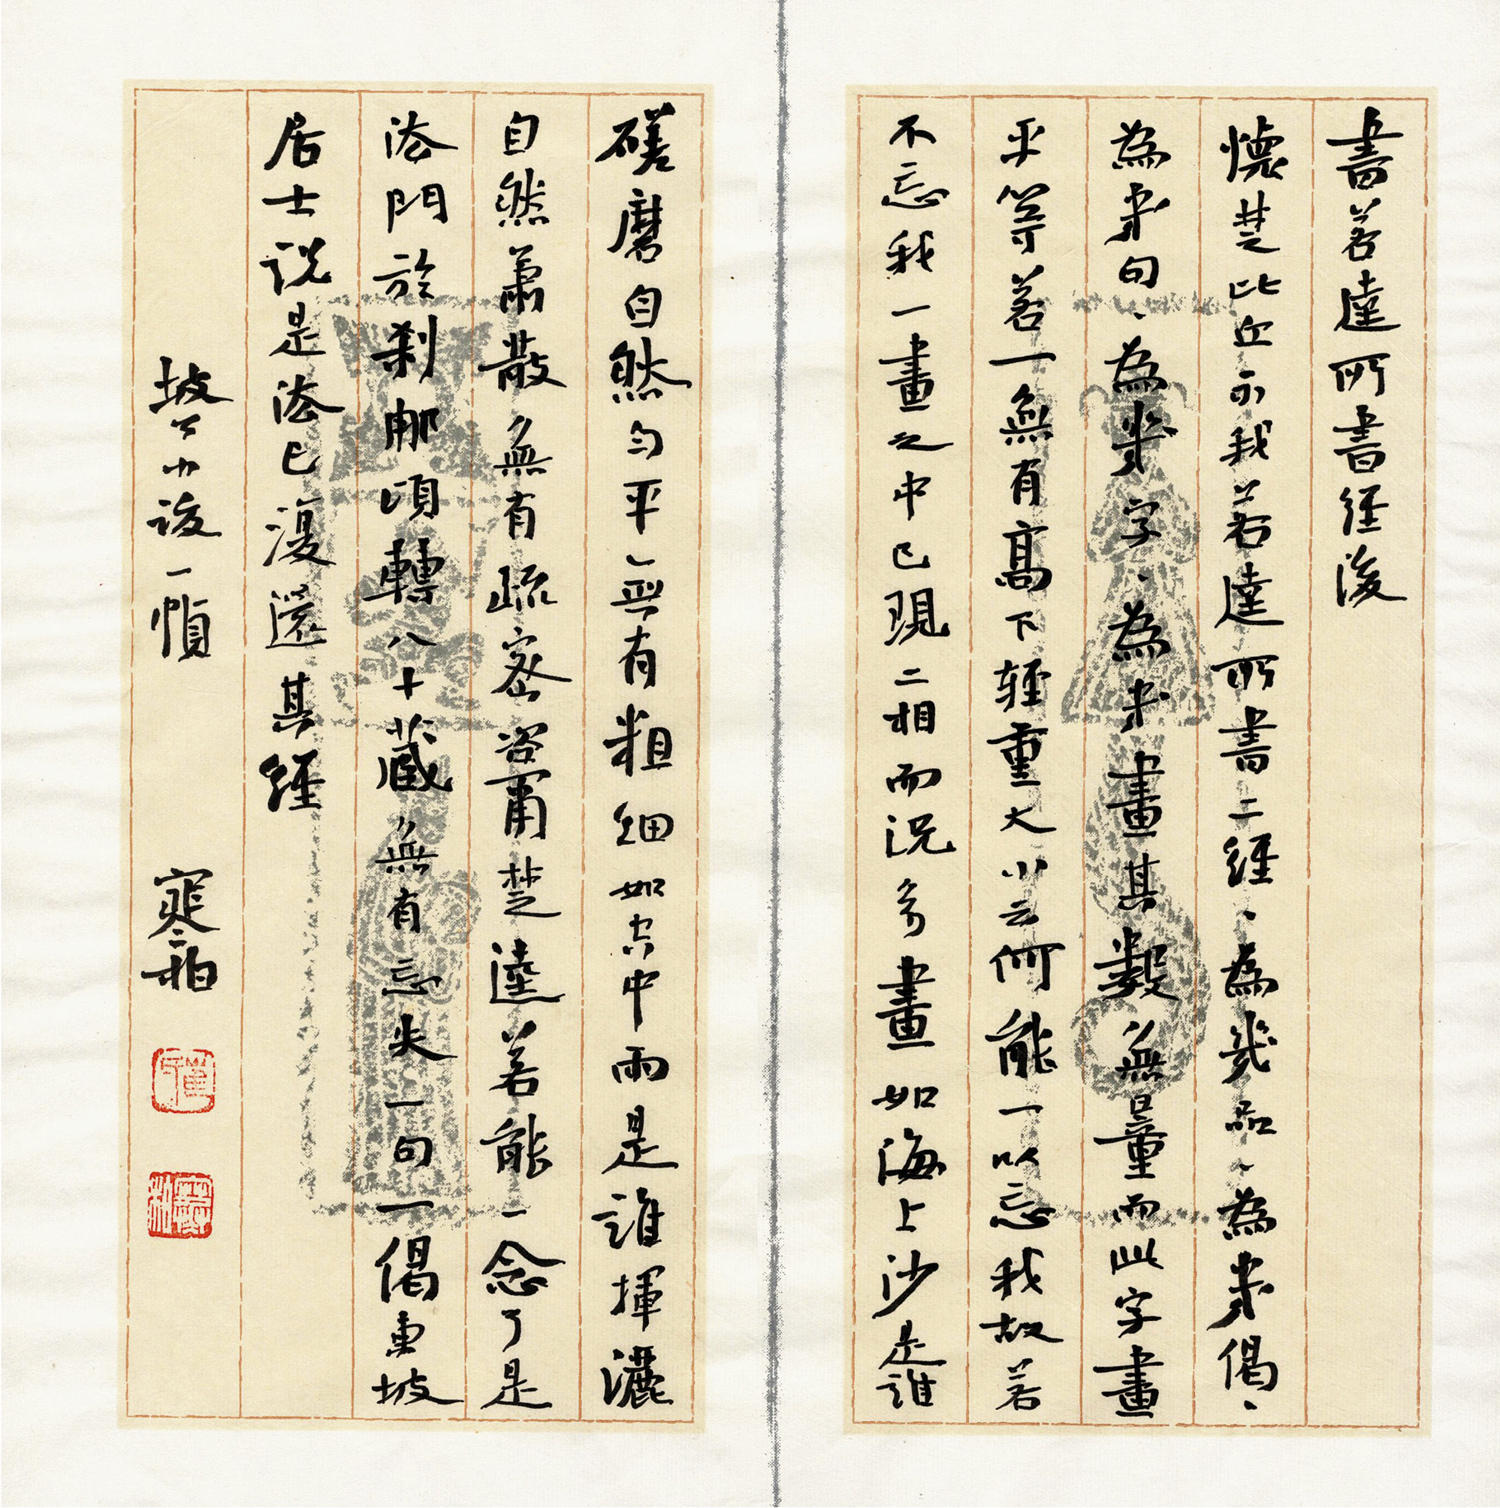 書若逵所書經後
懷楚比丘示我若逵所書二經、為幾品、為幾偈、
為幾句、為幾字、為幾畫其數無量而此字畫
平等若一無有高下輕重大小云何能一以忘我故若
不忘我一畫之中已現二相而況多畫如海上沙是誰
磋磨自然勻平無有粗細如空中雨是誰揮灑
自然蕭散無有疏密咨爾楚逵若能一念了是
法門於剎那頃轉八十藏無有忘失一句一偈東坡
居士說是法已復還其經
坡公小一幀 寒柏
崔